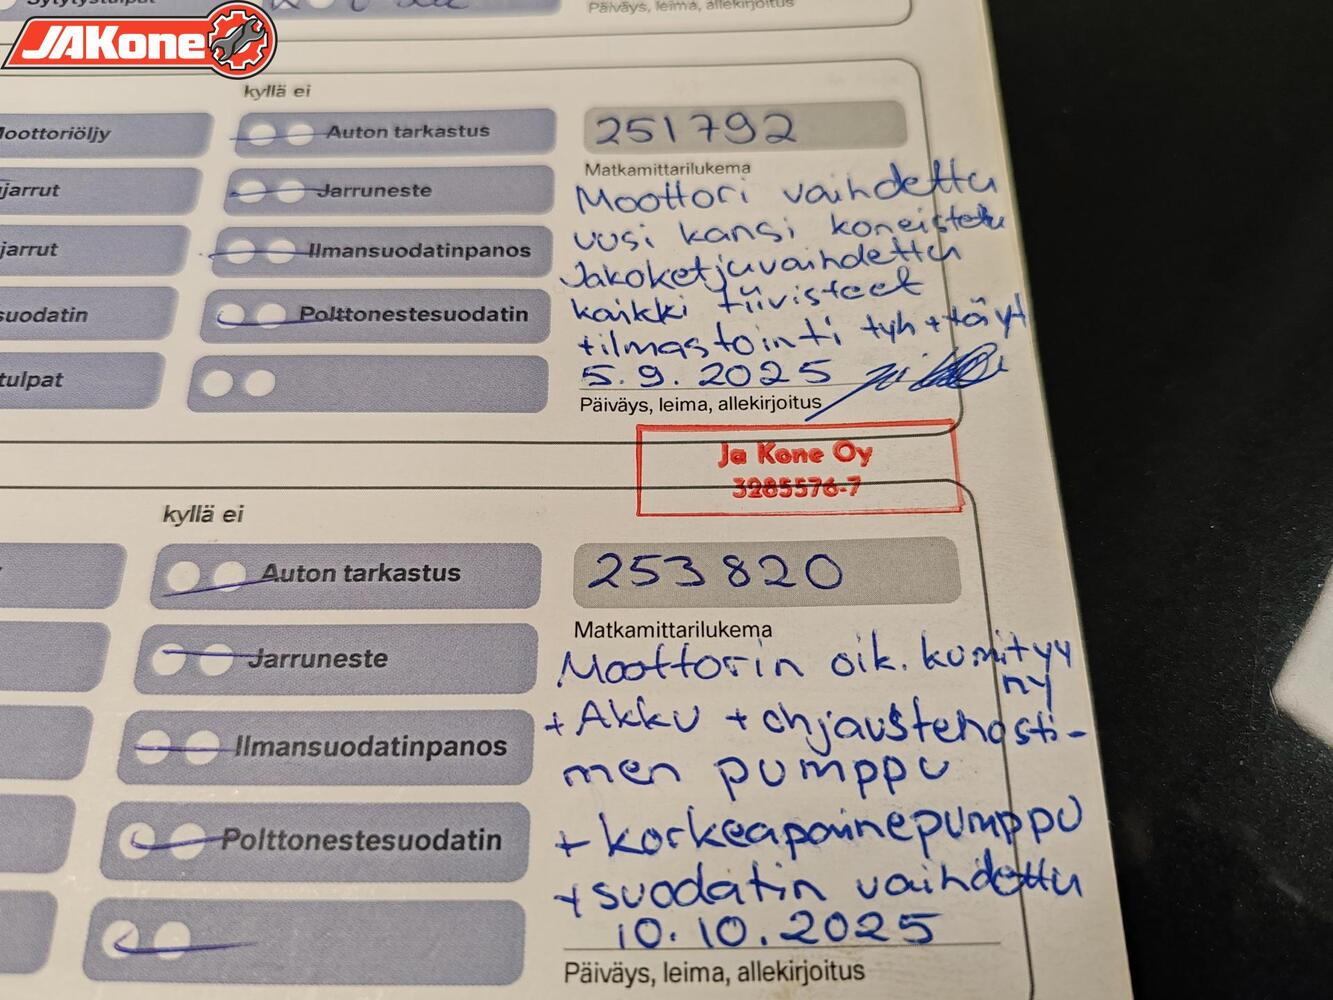 Sytytystulpat
Päiväys, leima, allekirjoitus
JAKone
kyllä ei
Moottoriöljy
Auton tarkastus
251792
Matkamittarilukema
jarrut
Jarruneste
Moottori vaihdettu
uusi kansi koneistettu
jarrut
Ilmansuodatinpanos
Jakoketju vaihdettu
kaikki tiivisteet
suodatin
Polttonestesuodatin
+ilmastointi tyh+täyt
tulpat
5.9.2025
Päiväys, leima, allekirjoitus
Ja Kone Oy
3285576-7
kyllä ei
Auton tarkastus
253820
Matkamittarilukema
Jarruneste
Moottorin oik. kumityyny
+ Akku + ohjaustehosti-
Ilmansuodatinpanos
men pumppu
Polttonestesuodatin
+ korkeapainepumppu
+ suodatin vaihdettu
10.10.2025
Päiväys, leima, allekirjoitus